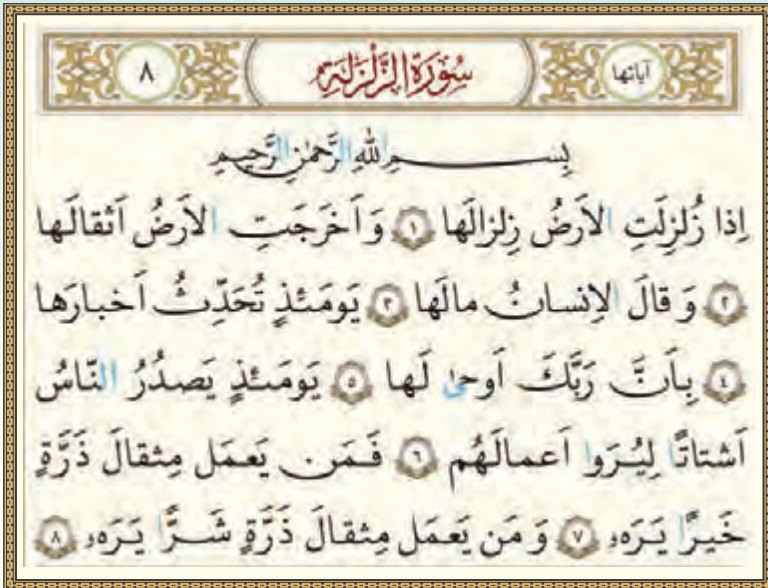 آياتها سُورَةُ الزَّلْزَلَةِ ٨
بِسمِ اللّٰهِ الرَّحمٰنِ الرَّحيمِ
اِذا زُلزِلَتِ الاَرضُ زِلزالَها ١ وَ اَخرَجَتِ الاَرضُ اَثقالَها
٢ وَ قالَ الاِنسانُ مالَها ٣ يَومَئِذٍ تُحَدِّثُ اَخبارَها
٤ بِاَنَّ رَبَّكَ اَوحىٰ لَها ٥ يَومَئِذٍ يَصدُرُ النّاسُ
اَشتاتًا لِيُرَوا اَعمالَهُم ٦ فَمَن يَعمَل مِثقالَ ذَرَّةٍ
خَيرًا يَرَهۥ ٧ وَ مَن يَعمَل مِثقالَ ذَرَّةٍ شَرًّا يَرَهۥ ٨